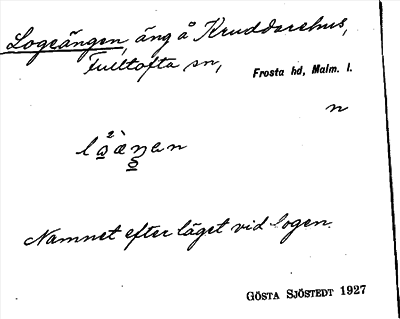 Logeängen, äng å Kruddarehus,
Fulltofta sn, Frosta hd, Malm. l.
n
Namnet efter läget vid logen.
GÖSTA SJÖSTEDT 1927